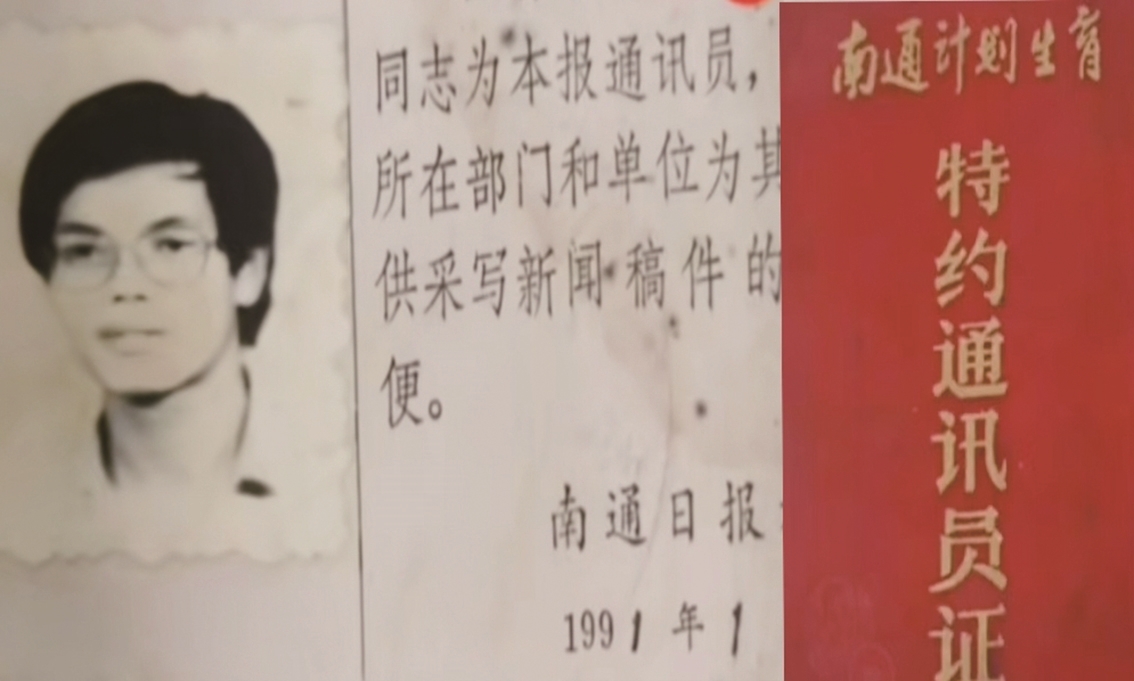 同志为本报通讯员，
所在部门和单位为其
供采写新闻稿件的
便。
南通日报
1991年1
南通计划生育
特约通讯员证